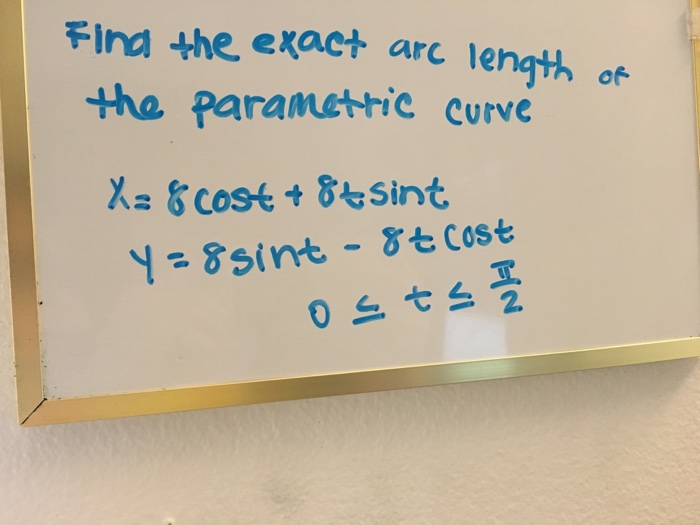 Find the exact arc length of
the parametric curve
x = 8 cost + 8t sint
y = 8 sint - 8t cost
0 ≤ t ≤ π/2